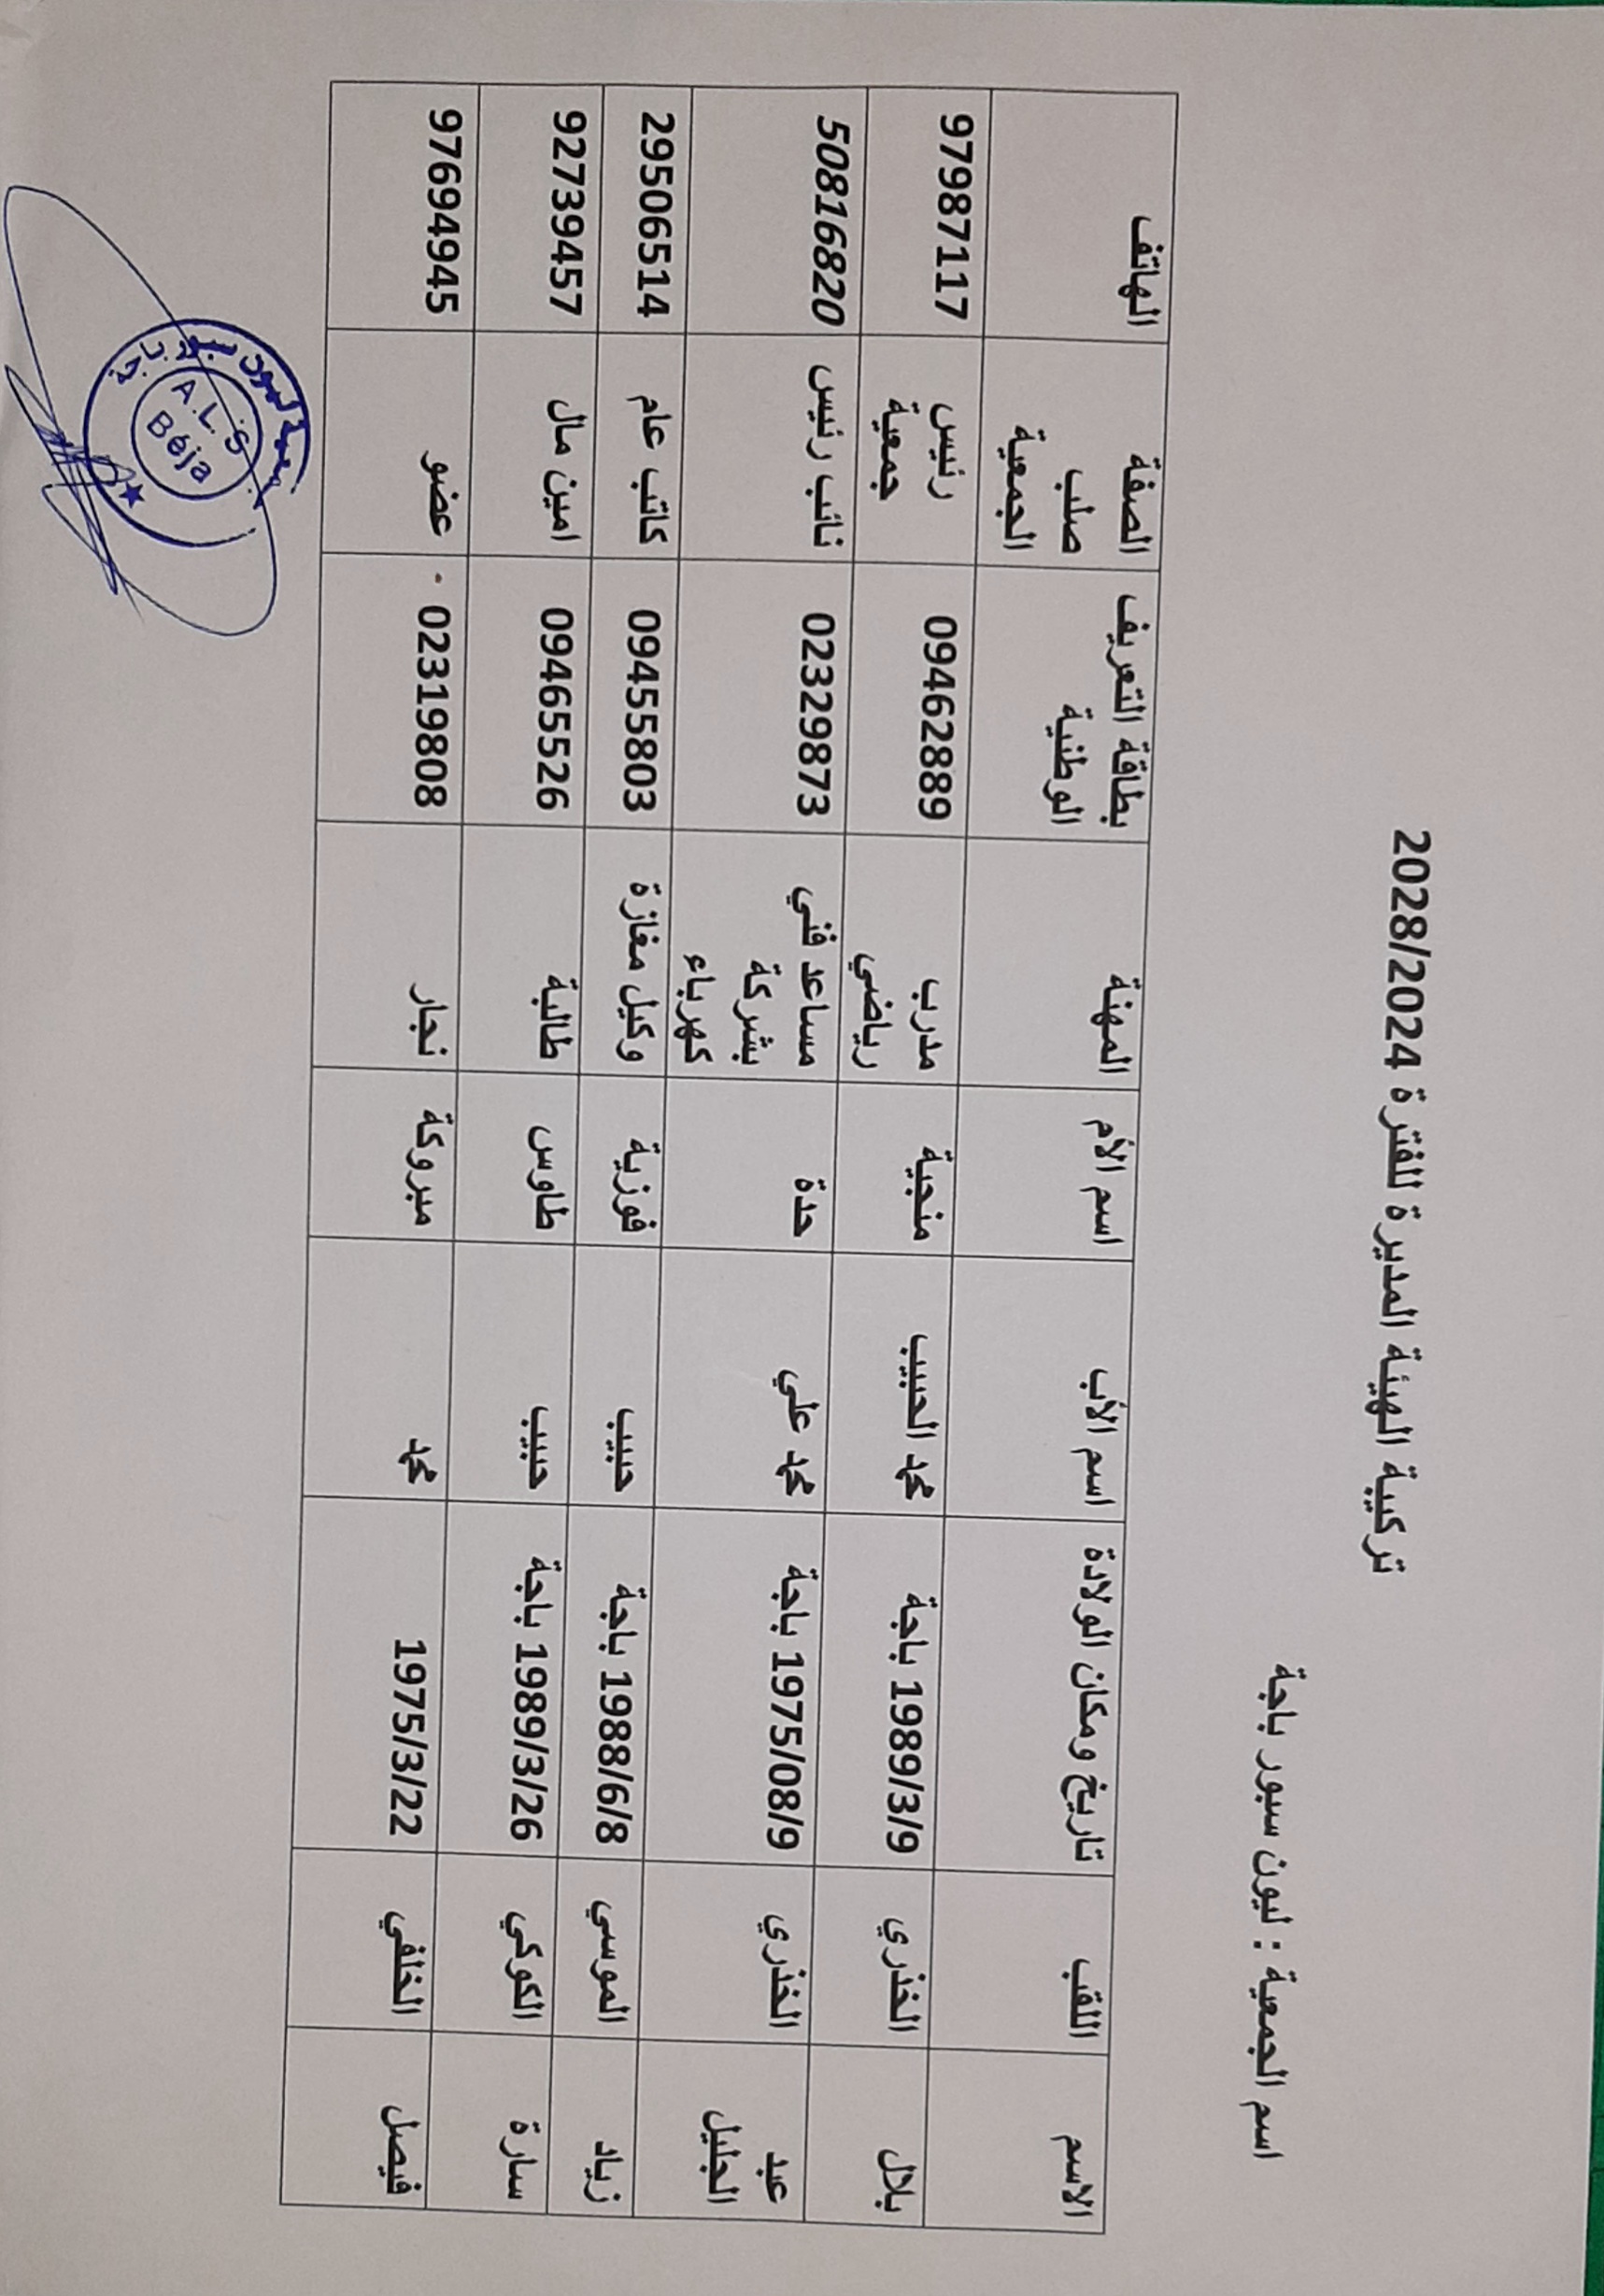 تركيبة الهيئة المديرة للفترة 2028/2024
اسم الجمعية : ليون سبور باجة
الاسم اللقب تاريخ ومكان الولادة اسم الأب اسم الأم المهنة بطاقة التعريف الوطنية الصفة صلب الجمعية الهاتف
بلال الخذري 1989/3/9 باجة محمد الحبيب منجية مدرب رياضي 09462889 رئيس جمعية 97987117
عبد الجليل الخذري 1975/08/9 باجة محمد علي حدة مساعد فني بشركة كهرباء 02329873 نائب رئيس 50816820
زياد الموسي 1988/6/8 باجة حبيب فوزية وكيل مغازة 09455803 كاتب عام 29506514
سارة الكوكي 1989/3/26 باجة حبيب طاوس طالبة 09465526 امين مال 92739457
فيصل الخلفي 1975/3/22 محمد مبروكة نجار 02319808 عضو 97694945
جمعية ليون سبور باجة
A.L.S
Béja